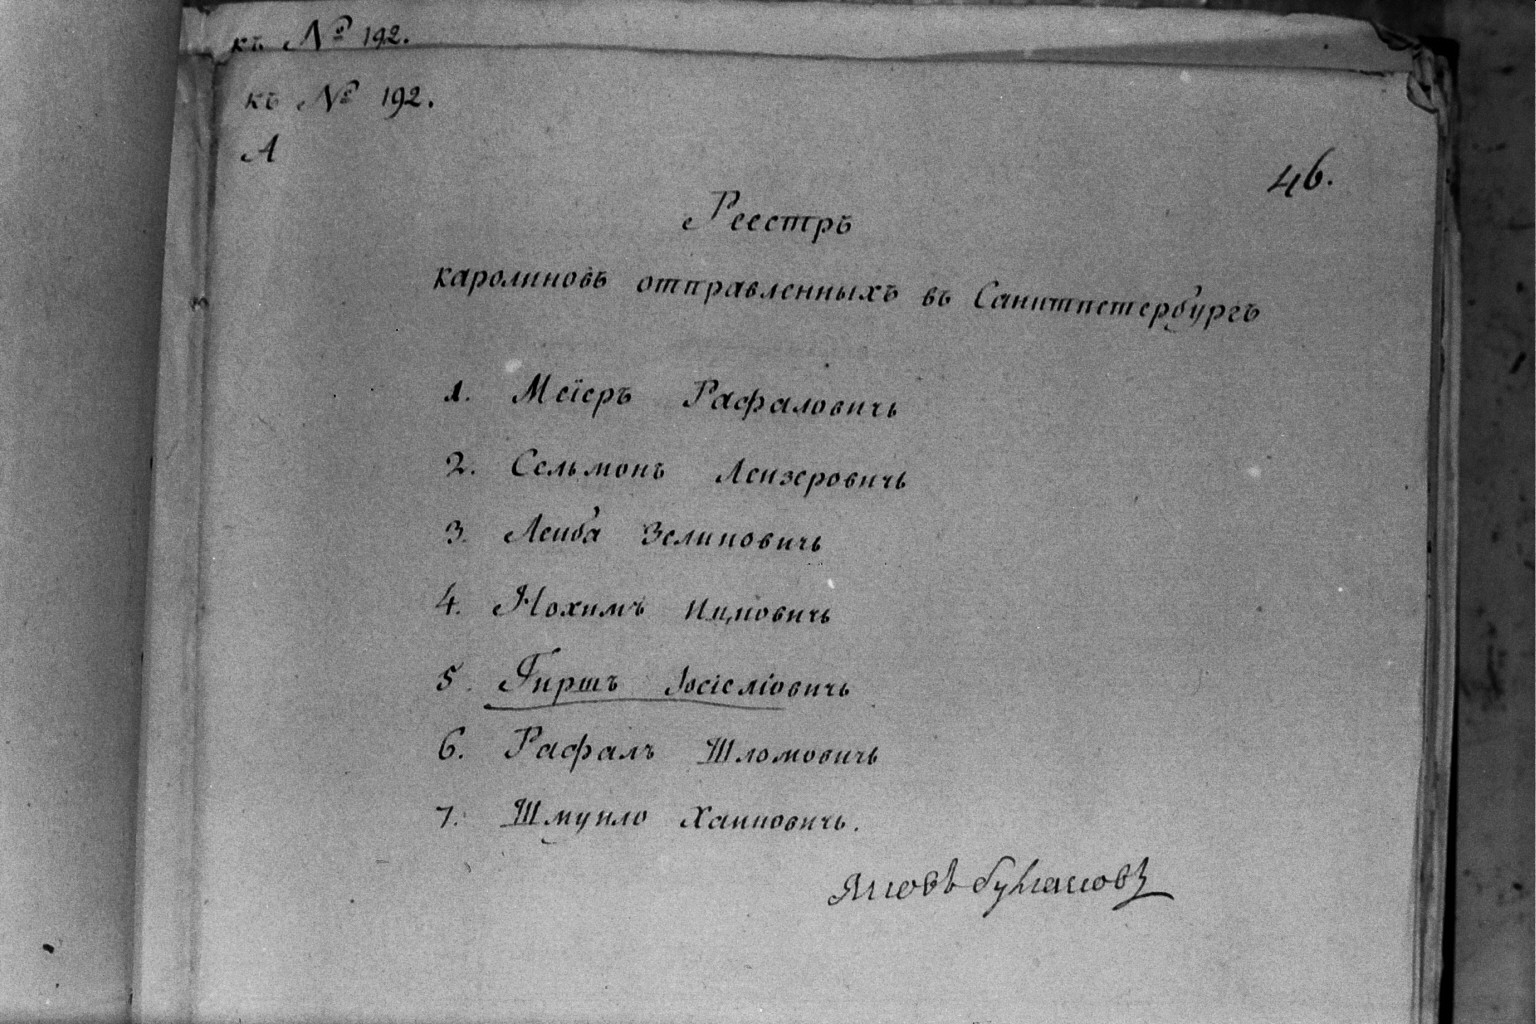 къ № 192.
къ № 192.
А
46.
Реестръ
каролиновъ отправленныхъ въ Санктпетербургъ
1. Меіеръ Рафаловичь
2. Сельмонъ Леизеровичь
3. Леиба Зелиновичь
4. Нохимъ Ицковичь
5. Гиршъ Іосіеліовичь
6. Рафалъ Шломовичь
7. Шмуило Хаимовичь.
Яковъ